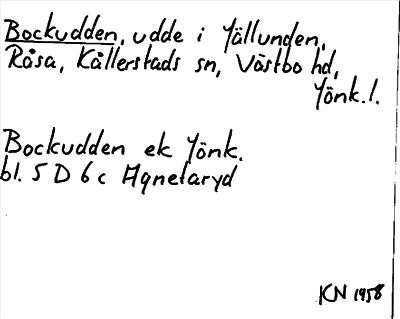 Bockudden, udde i Jällunden,
Råsa, Kållerstads sn, Västbo hd,
Jönk.l.
Bockudden ek Jönk.
bl. 5 D 6 c Agnetaryd
KN 1958